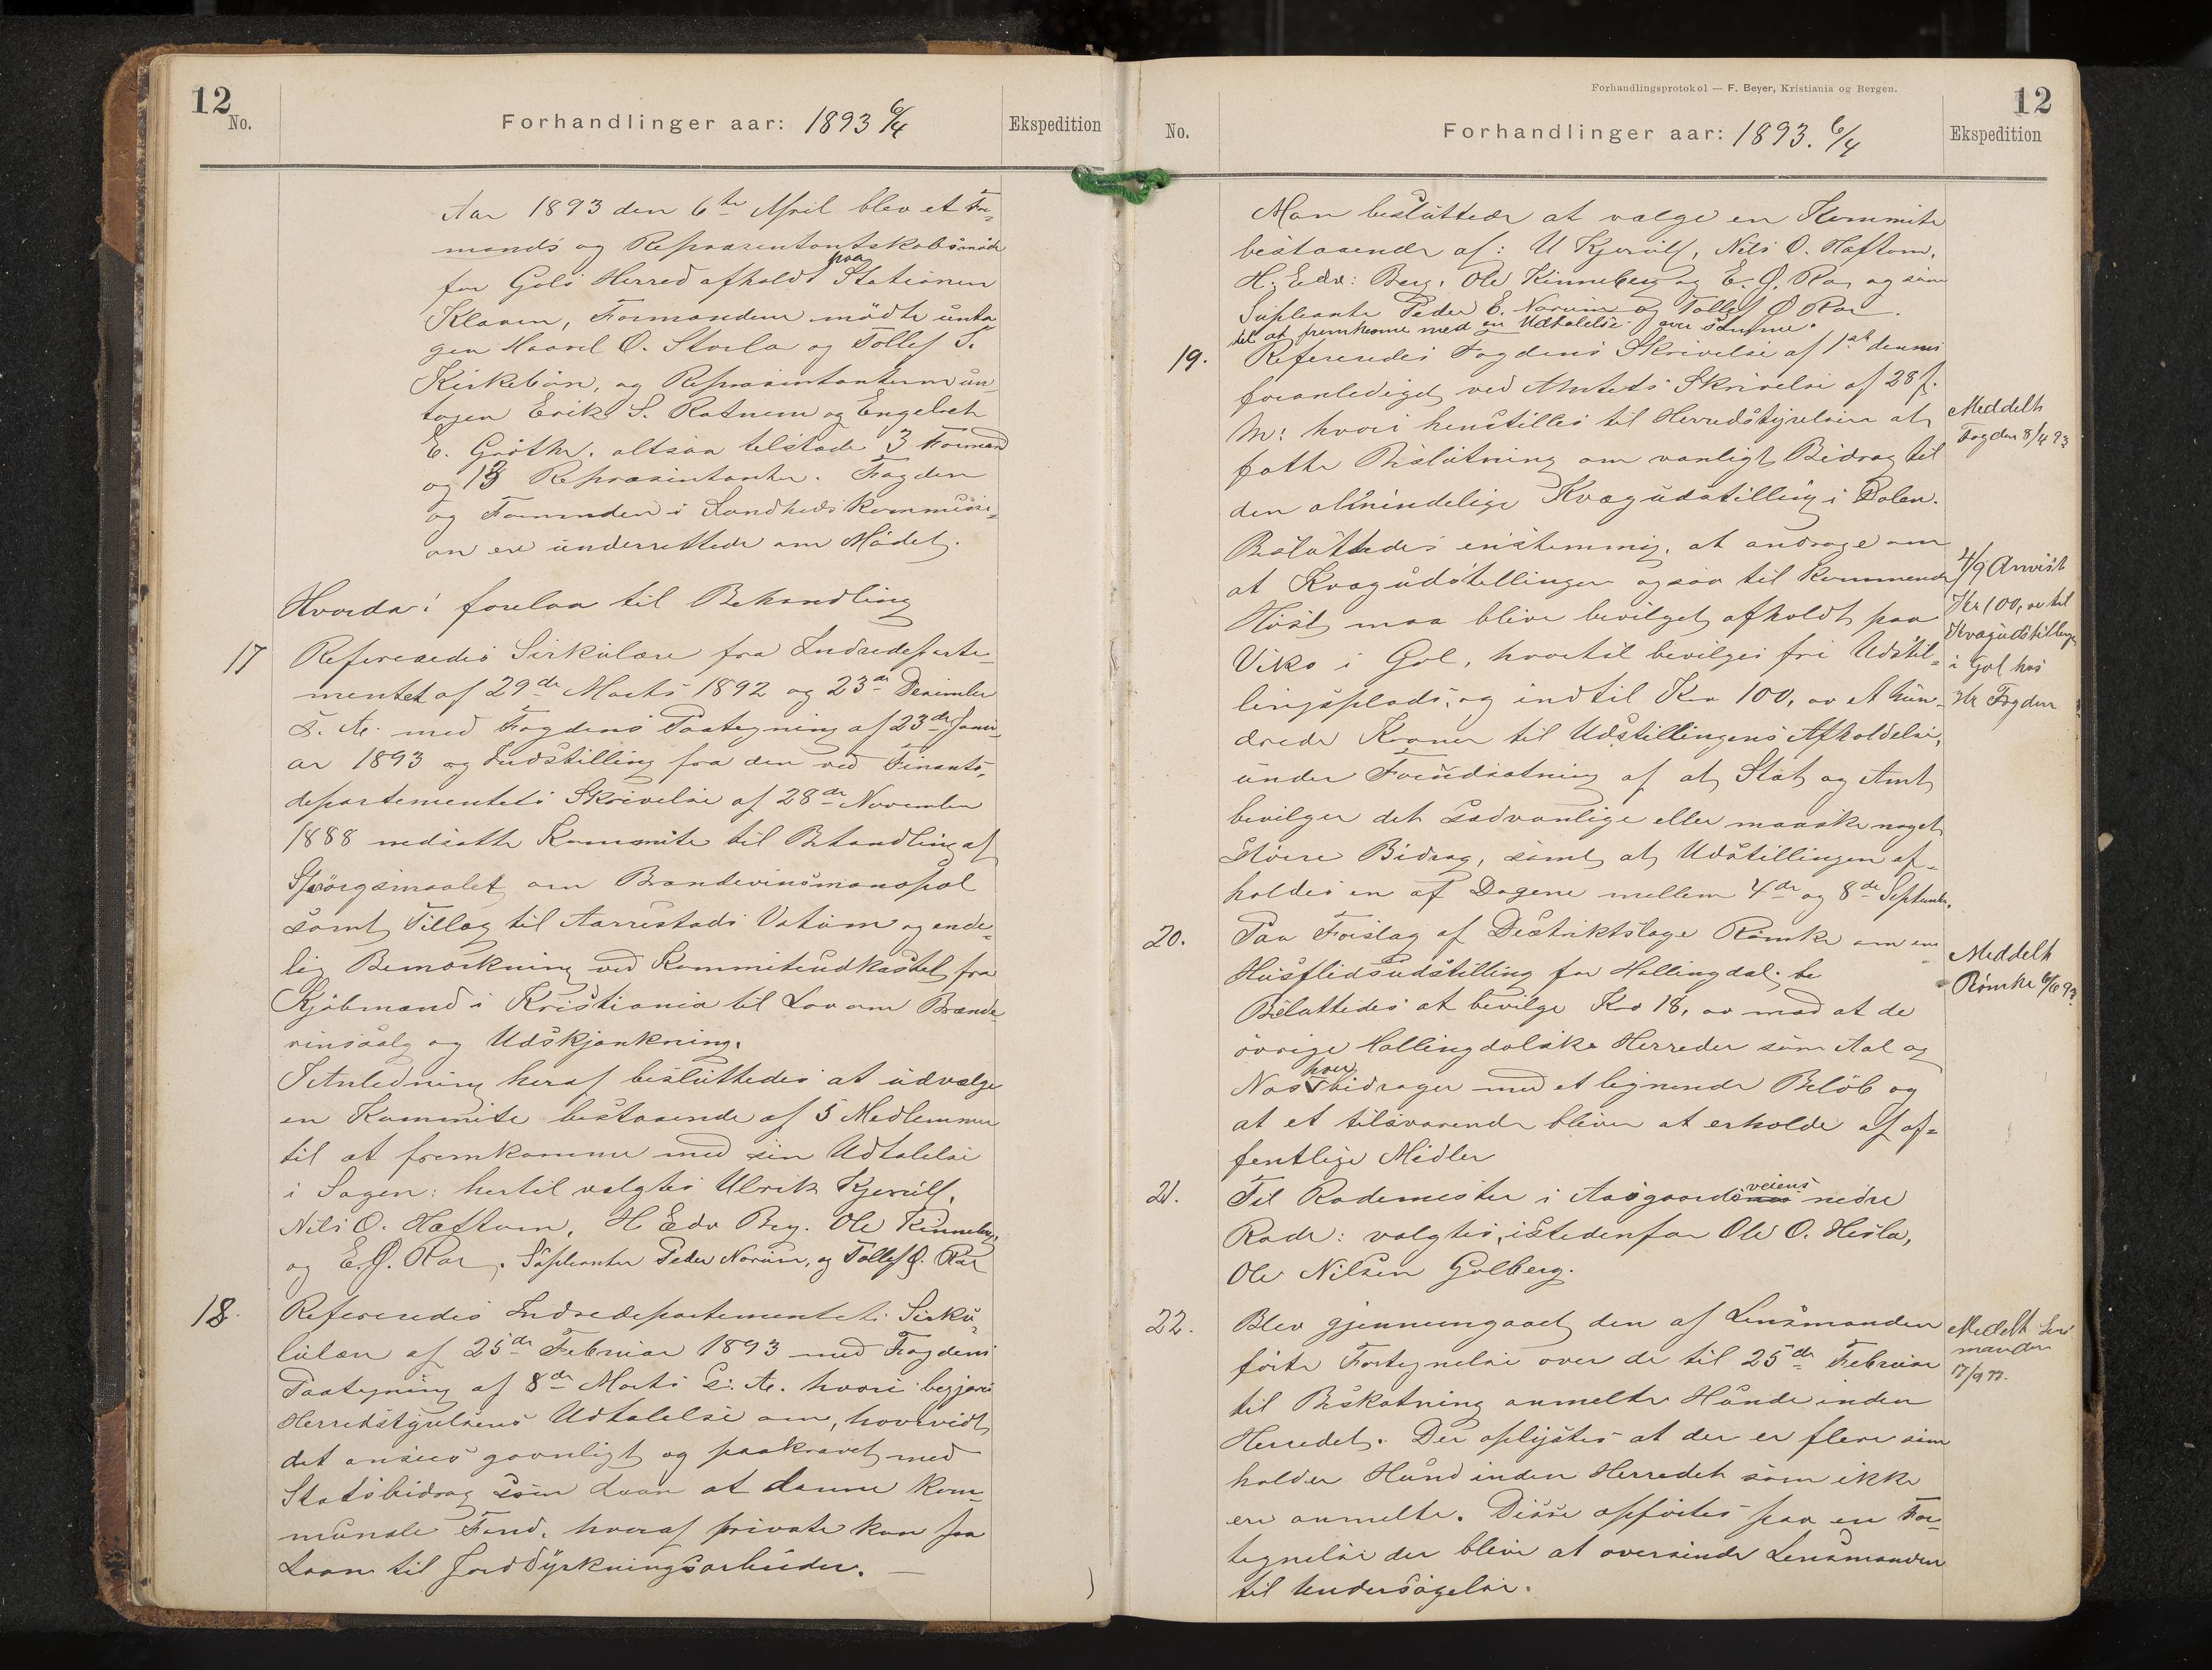 12
No.
Forhandlinger aar: 1893 6/4
Ekspedition
Aar 1893 den 6te April blev et For-
mands og Repræsentantskabsmøde
for Gols Herred afholdt paa Stationen
Klaven, Formændene mødte unta
gen Haavel O. Storla og Tollef T.
Kirkebøn, og Repræsentanterne un
tagen Erik S. Rotnem og Engebret
E. Grøthe, altsaa tilstede 3 Formænd
og 13 Repræsentanter. Fogden
og Formanden i Sundheds kommissi-
on ere underrettede om Mødet.
Hvorda! forelaa til Behandling
17
Refereredes Sirkulære fra Indredeparte-
mentet af 29de Marts 1892 og 23de Desember
s. A. med Fogdens Paategning af 23de Janu-
ar 1893 og Indstilling fra den ved Finants-
departementets Skrivelse af 28de November
1888 nedsatte Kommite til Behandling af
Spørgsmaalet om Brændevinsmonopol
samt Tillæg til Aarrestads Votum og ende-
lig Bemærkning ved Kommiteudkastet fra
Kjøbmænd i Kristiania til Lov om Brænde-
vinssalg og Udskjænkning.
I Anledning heraf besluttedes at udvælge
en Kommite bestaaende af 5 Medlemmer
til at fremkomme med sin Udtalelse
i Sagen: hertil valgtes Ulrik Kjerulf,
Nils O. Haftom, H Edv Berg. Ole Kinneberg,
og E. O. Roe, Supleanter Peder Norum, og Tollef O. Roe
18.
Refereredes Indredepartementets Sirku-
lulær af 25de Februar 1893 med Fogdens
Paategning af 8de Marts s. A. hvori begjæres
Herredstyrelsens Udtalelse om, hvorvidt
det ansees gavnligt og paakrævet med
Statsbidrag som Laan at danne kom-
munale Fond, hveraf private kan faa
Laan til Jord Dyrkningsarbeider. —
Forhandlingsprotokol — F. Beyer, Kristiania og Bergen.
12
No.
Forhandlinger aar: 1893. 6/4
Ekspedition
Man besluttede at vælge en Kommite
bestaaende af: U Kjerulf, Nils O. Haftom,
H. Edv: Berg, Ole Kinneberg og E. O. Roe, og som
Supleanter Peder E. Norum og Tollef O Roe.
til at fremkomme med en Udtalelse over samme.
19.
Refereredes Fogdens Skrivelse af 1ste dennes
foranlediget ved Amtets Skrivelse af 28 f.
M: hvori henstilles til Herredstyrelsen at
fatte Beslutning om vanligt Bidrag til
den almindelige Kvægudstilling i Dalen.
Besluttedes enstemmig, at andrage om
at Kvægudstillingen ogsaa til kommende
Høst maa blive bevilget afholdt paa
Viko i Gol, hvortil bevilges fri Udstil-
lingsplads, og indtil Kr 100, oo et hun-
drede Kroner til Udstillingens Afholdelse,
under Forudsætning af at Stat og Amt
bevilger det sædvanlige eller maaske noget
større Bidrag, samt at Udstillingen af-
holdes en af Dagene mellem 4de og 8de September.
Meddelt
Fogden 8/4 93
4/9 Anvist
Kr 100, oo til
Kvægudstillingen
i Gol hos
Hr Fogden
20.
Paa Forslag af Distriktslæge Rømke om en
Husflidsudstilling for Hallingdal: be
Besluttedes at bevilge Kr 18, oo mod at de
øvrige Hallingdalske Herreder som Aal og
Næs hver bidrager med et lignende Beløb og
at et tilsvarende bliver at erholde af of-
fentlige Midler
Meddelt
Rømke 6/6 93
21.
Til Rodemester i Aasgaardsveiens nedre
Rode: valgtes, istedenfor Ole O. Hesla,
Ole Nilsen Golberg.
22.
Blev gjennemgaaet den af Lensmanden
førte Fortegnelse over de til 25de Februar
til Beskatning anmeldte Hunde inden
Herredet. Der oplystes at der er flere som
holder Hund inden Herredet som ikke
ere anmeldte. Disse opførtes paa en For-
tegnelse der bliver at oversende Lensmanden
til Undersøgelse.
Meddelt Lens
manden